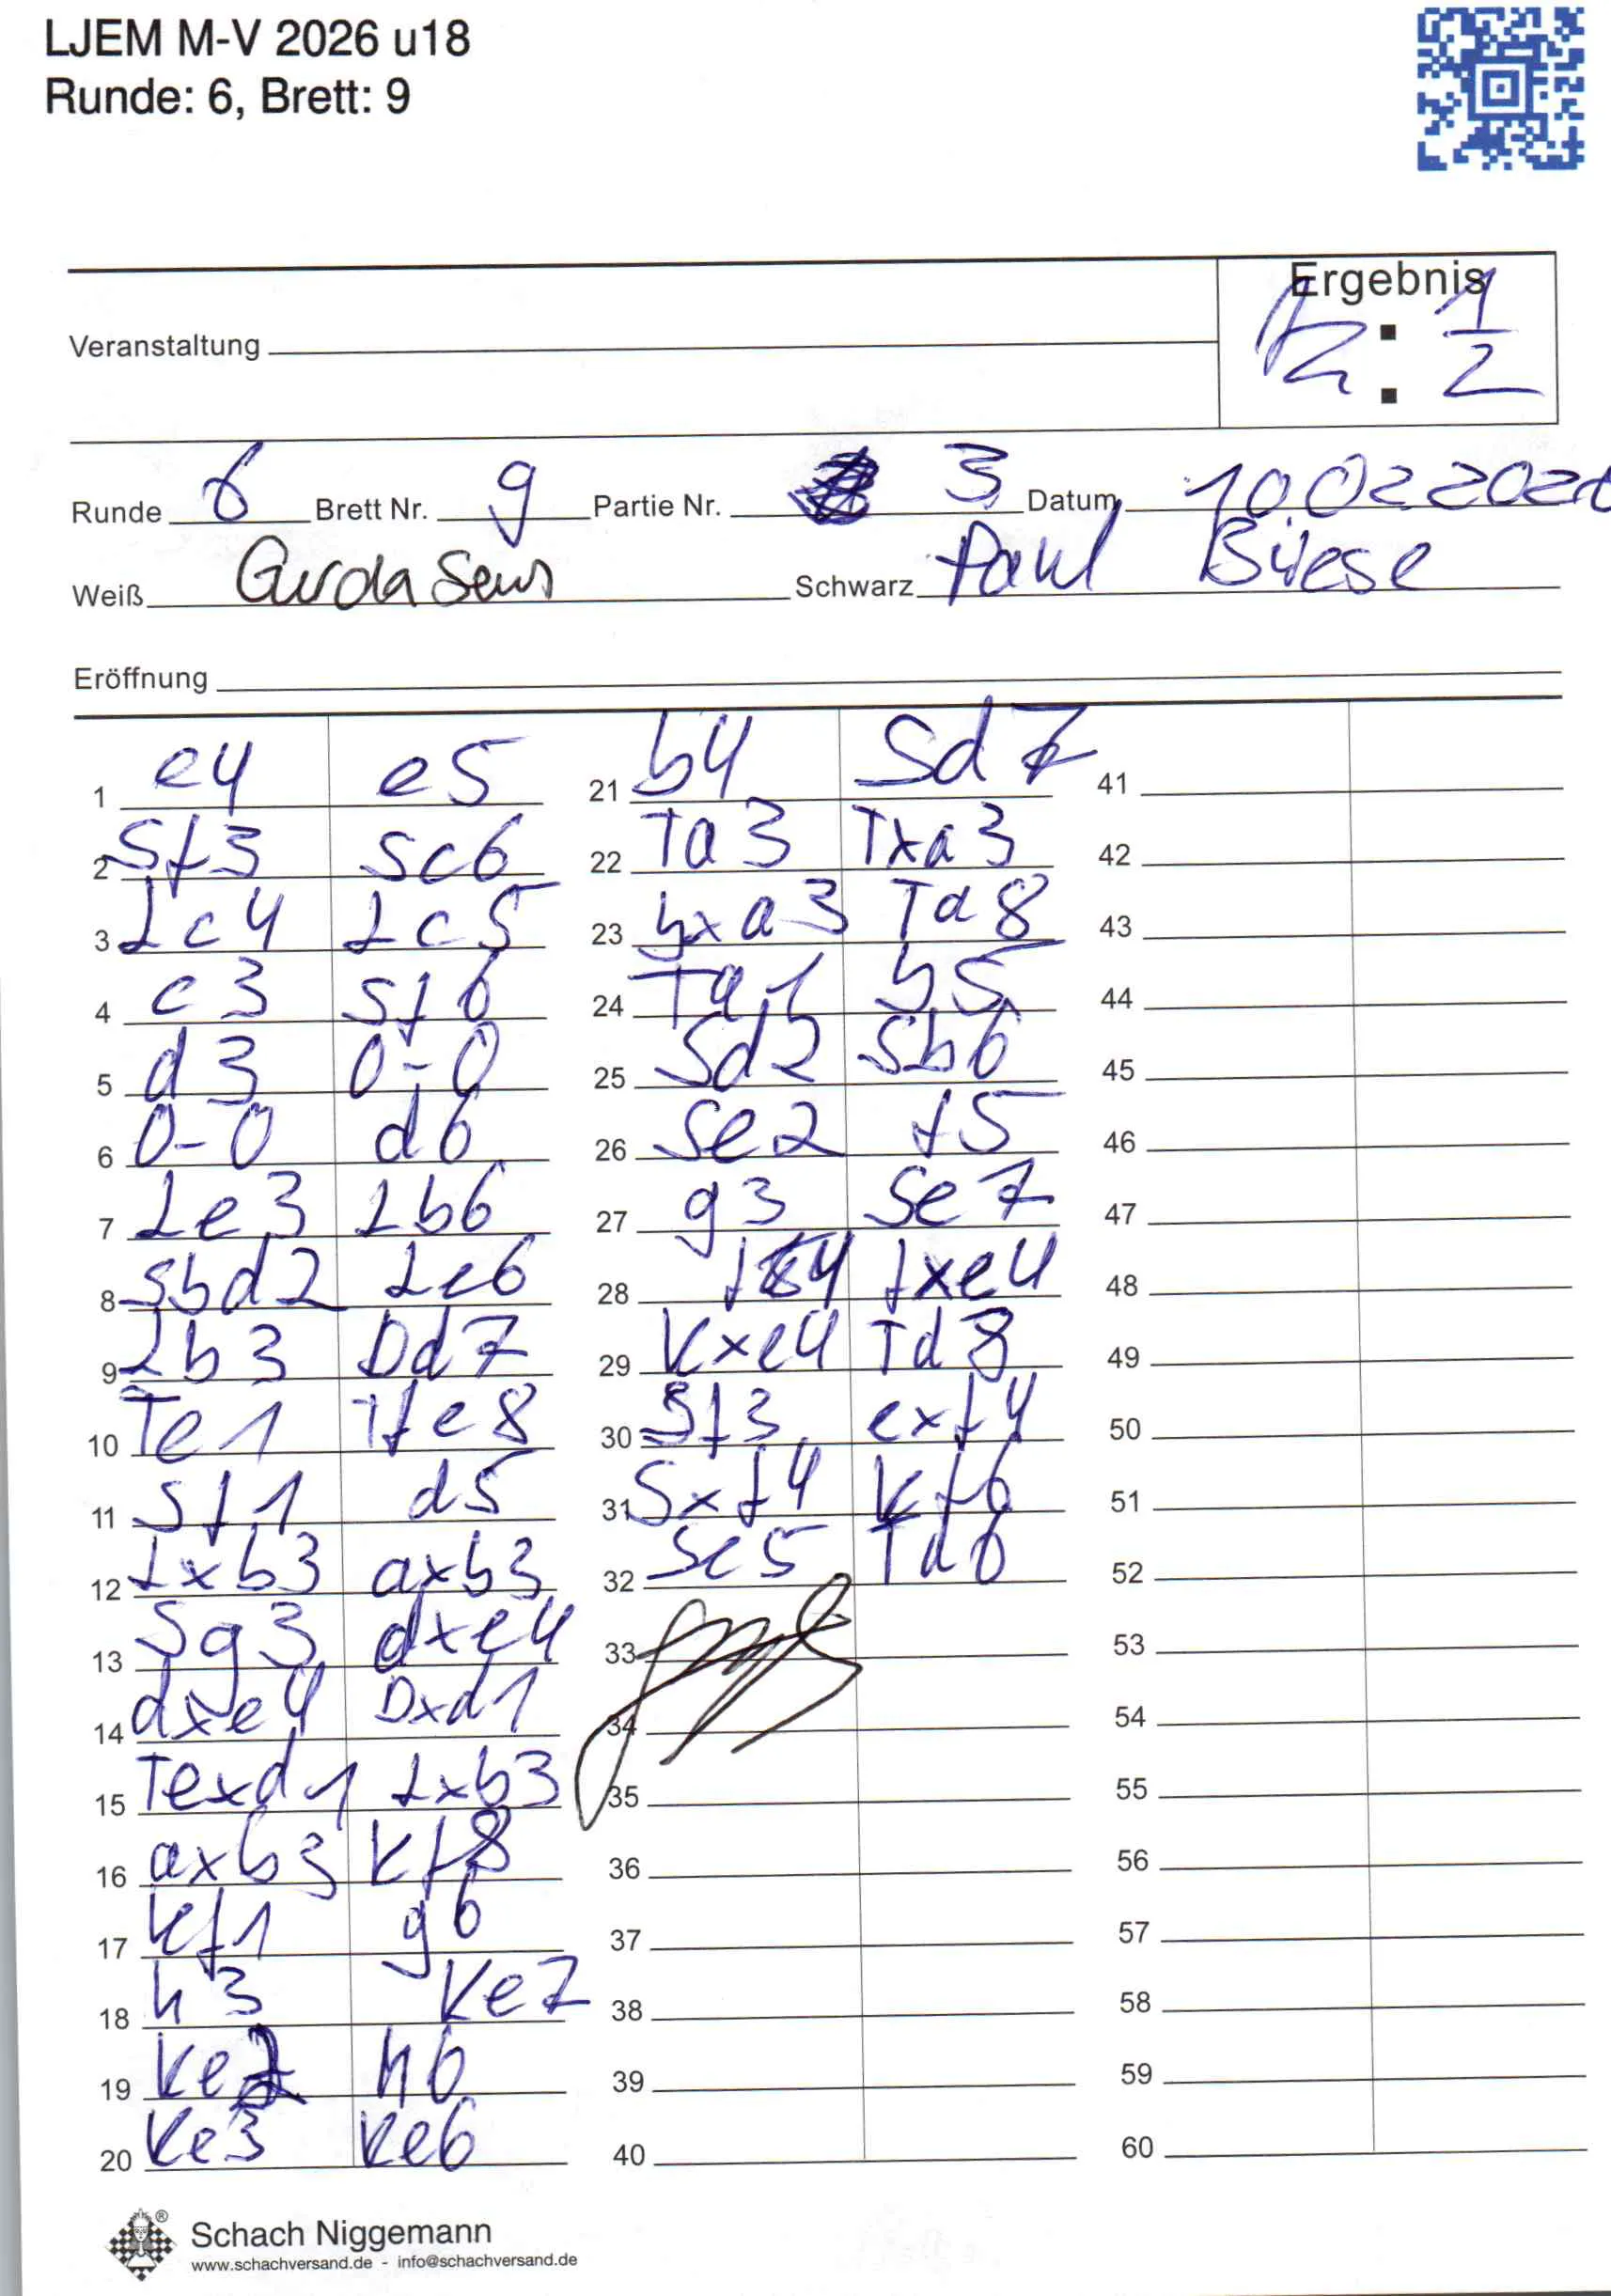 LJEM M-V 2026 u18
Runde: 6, Brett: 9
Ergebnis
Veranstaltung
1/2 : 1/2
Runde 6 Brett Nr. 9 Partie Nr. 3 Datum 10 02 2026
Weiß Schwarz Paul Büese
Eröffnung
1 e4 e5
2 Sf3 Sc6
3 Lc4 Lc5
4 c3 Sf6
5 d3 0-0
6 0-0 d6
7 Le3 Lb6
8 Sbd2 Le6
9 Lb3 Dd7
10 Te1 Tfe8
11 Sf1 d5
12 Lxb3 axb3
13 Sg3 dxe4
14 dxe4 Dxd1
15 Texd1 Lxb3
16 axb3 Kf8
17 Kf1 g6
18 h3 Ke7
19 Ke2 h6
20 Ke3 Ke6
21 b4 Sd7
22 Ta3 Txa3
23 bxa3 Ta8
24 Ta1 b5
25 Sd2 Sb6
26 Se2 f5
27 g3 Se7
28 f4 fxe4
29 Kxe4 Td8
30 Sf3 exf4
31 Sxf4 Kf6
32 Se5 Td6
33
34
35
36
37
38
39
40
41
42
43
44
45
46
47
48
49
50
51
52
53
54
55
56
57
58
59
60
Schach Niggemann
www.schachversand.de - info@schachversand.de